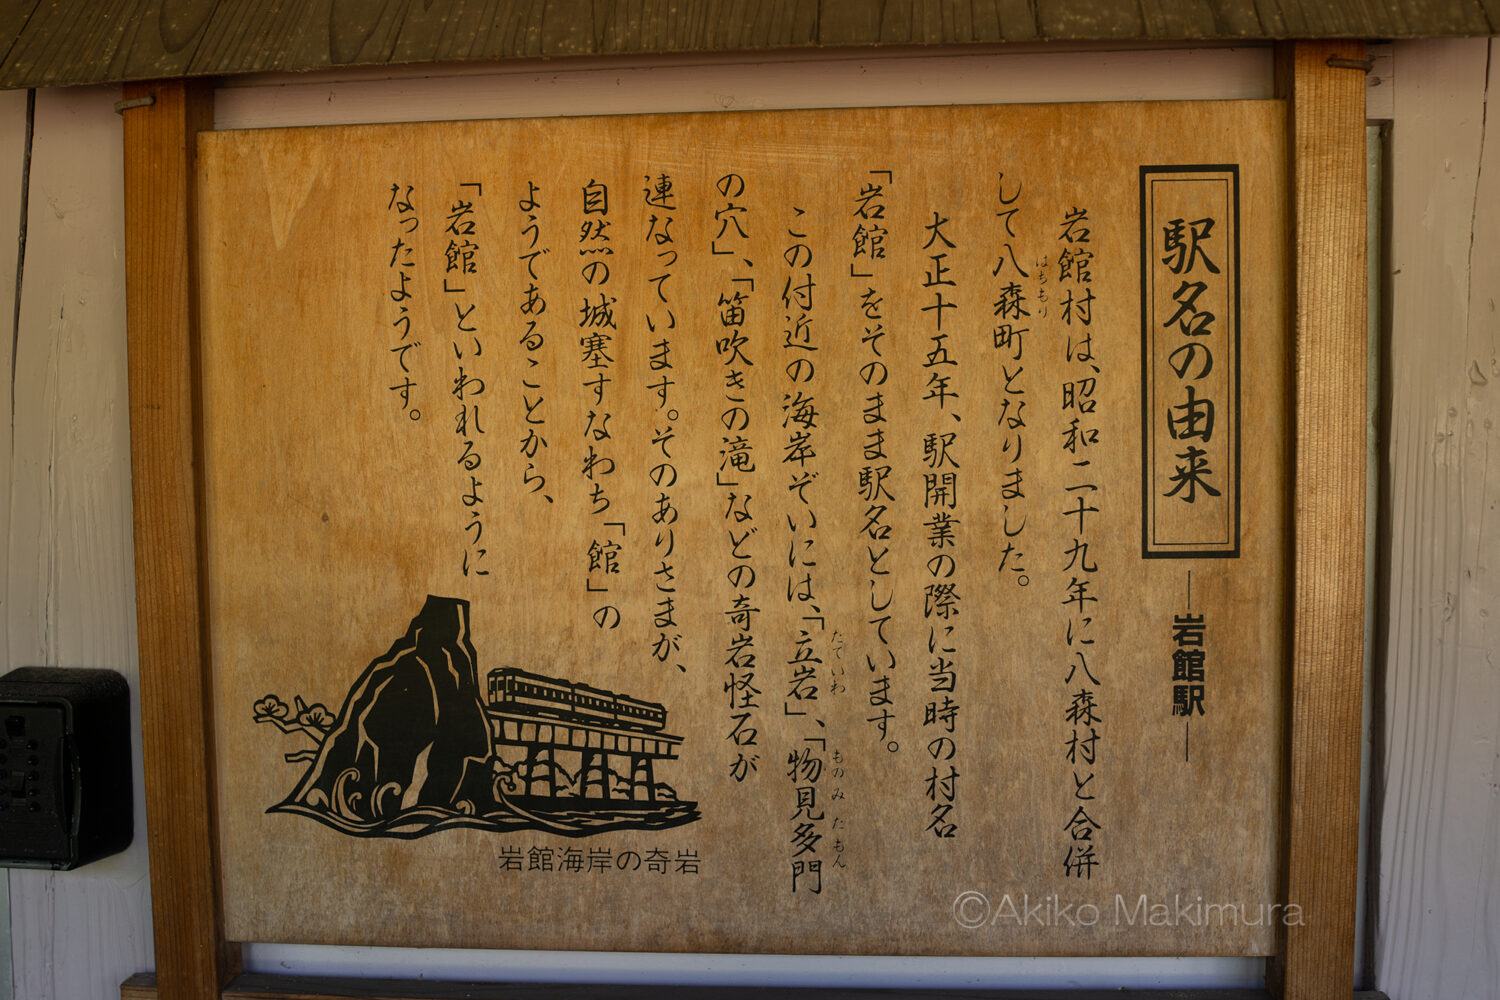 駅名の由来
―岩館駅―
岩館村は、昭和二十九年に八森村と合併
して八森町となりました。
はちもり
大正十五年、駅開業の際に当時の村名
「岩館」をそのまま駅名としています。
この付近の海岸ぞいには、「立岩」、「物見多門
たていわ
ものみ たもん
の穴」、「笛吹きの滝」などの奇岩怪石が
連なっています。そのありさまが、
自然の城塞すなわち「館」の
ようであることから、
「岩館」といわれるように
なったようです。
岩館海岸の奇岩
©Akiko Makimura